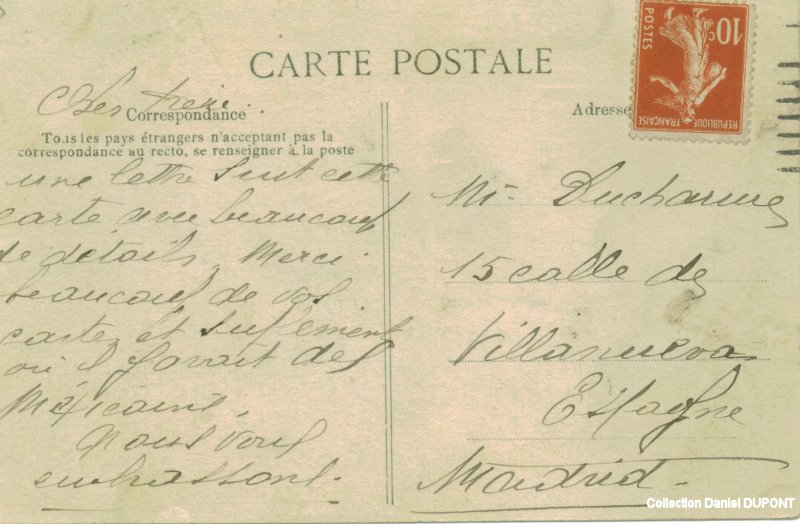 CARTE POSTALE
Correspondance
Tous les pays étrangers n'acceptant pas la
correspondance au recto, se renseigner à la poste
une lettre suit cette
carte avec beaucoup
de détails. Merci
beaucoup de vos
cartes et
où il des
Mexicains.
Nous vous
embrassons.
Adresse
10c
POSTES
REPUBLIQUE FRANÇAISE
Mr Ducharme
15 calle de
Villanueva
Espagne
Madrid
Collection Daniel DUPONT